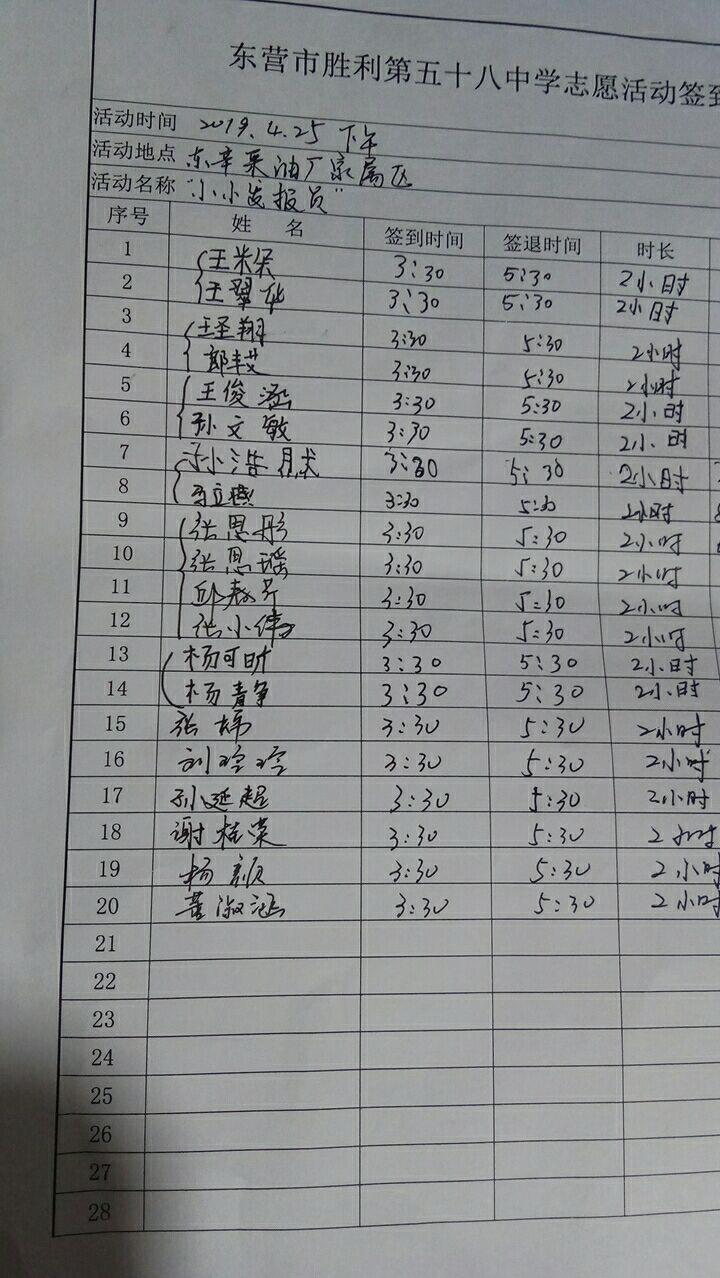 东营市胜利第五十八中学志愿活动签到
活动时间 2019.4.25 下午
活动地点 东辛采油厂家属区
活动名称 "小小发报员"
序号 姓 名 签到时间 签退时间 时长
1 3:30 5:30 2小时
2 任翠华 3:30 5:30 2小时
3 王圣翔 3:30 5:30 2小时
4 3:30 5:30 2小时
5 王俊涵 3:30 5:30 2小时
6 孙文敏 3:30 5:30 2小时
7 3:30 5:30 2小时
8 3:30 5:30 2小时
9 张恩彤 3:30 5:30 2小时
10 张恩瑶 3:30 5:30 2小时
11 3:30 5:30 2小时
12 张小伟 3:30 5:30 2小时
13 杨可时 3:30 5:30 2小时
14 杨青争 3:30 5:30 2小时
15 张娣 3:30 5:30 2小时
16 刘玲玲 3:30 5:30 2小时
17 孙延超 3:30 5:30 2小时
18 谢桂荣 3:30 5:30 2小时
19 杨颜 3:30 5:30 2小时
20 董淑涵 3:30 5:30 2小时
21
22
23
24
25
26
27
28